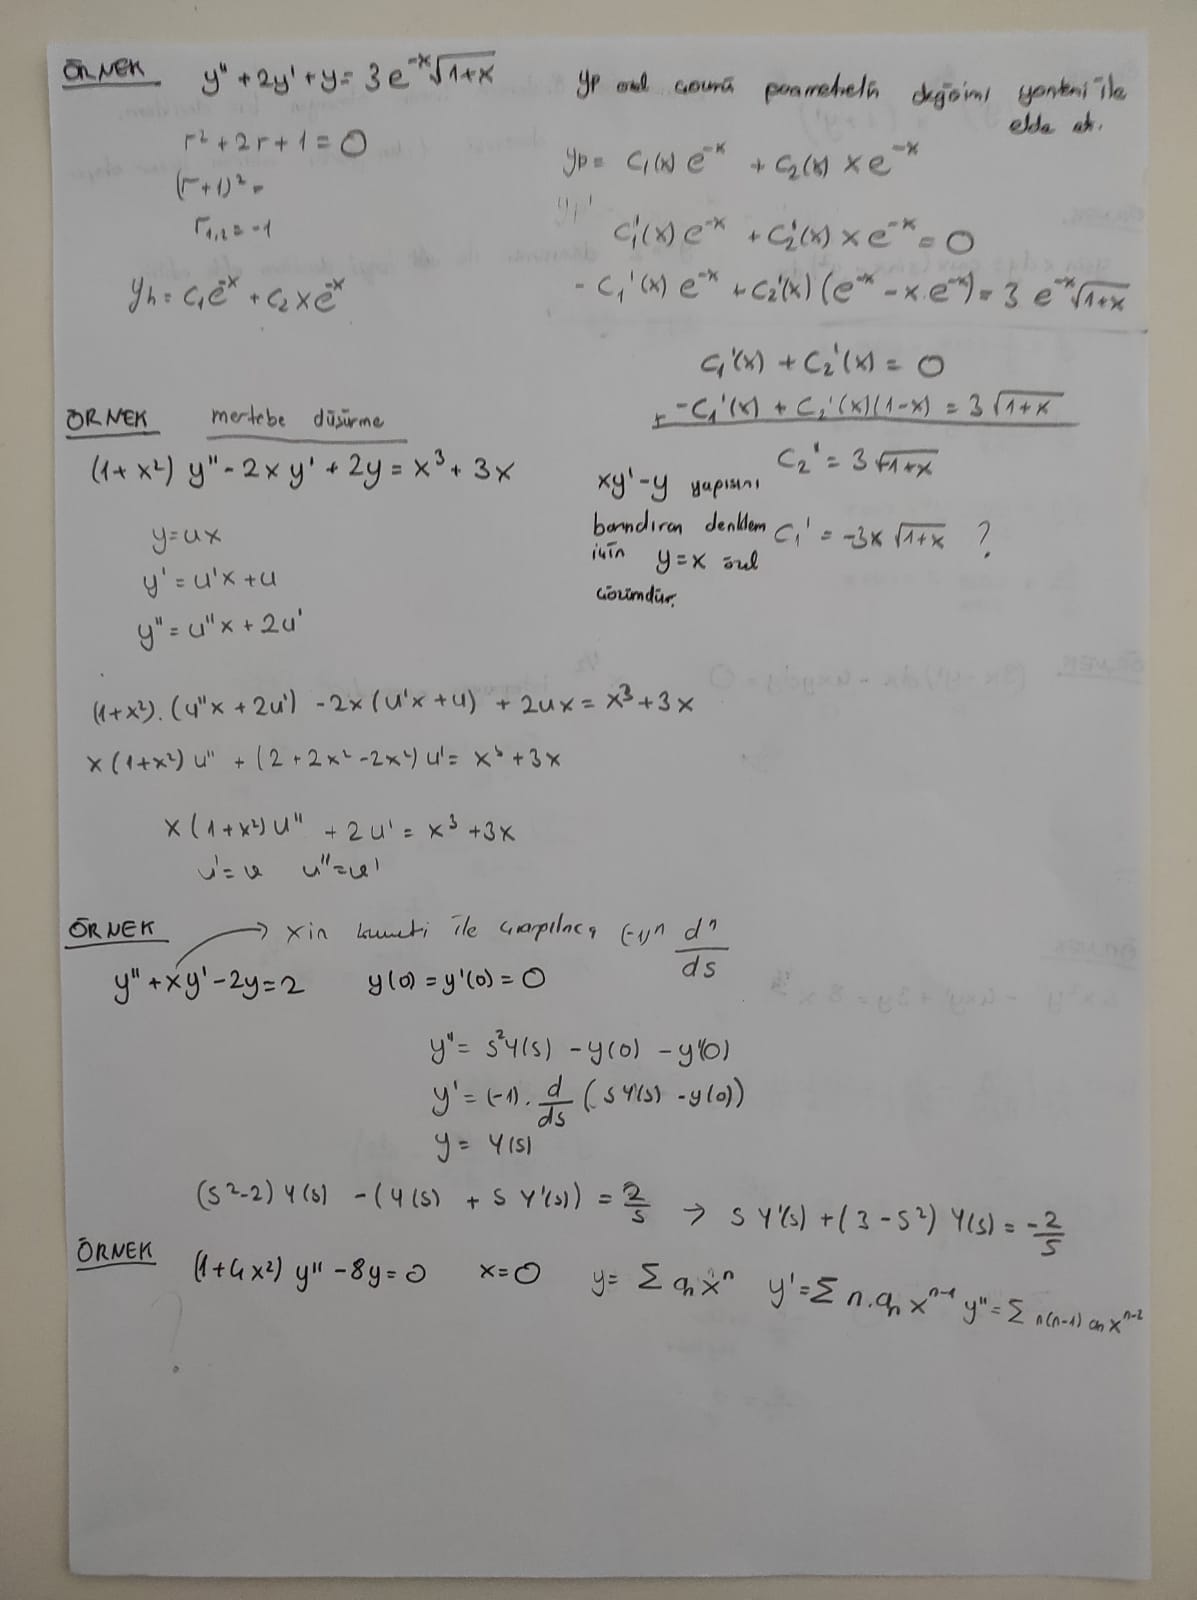 ÖRNEK y'' + 2y' + y = 3e^-x √1+x
r² + 2r + 1 = 0
(r+1)² =
r1,2 = -1
yh = c1 e^-x + c2 x e^-x
yp özel çözümü parametrelerin değişimi yöntemi ile
elde et.
yp = C1(x) e^-x + C2(x) x e^-x
C1'(x) e^-x + C2'(x) x e^-x = 0
- C1'(x) e^-x + C2'(x) (e^-x - x.e^-x) = 3 e^-x √1+x
C1'(x) + C2'(x) = 0
+ -C1'(x) + C2'(x)(1-x) = 3 √1+x
C2' = 3 √1+x
C1' = -3x √1+x ?
ÖRNEK mertebe düşürme
(1+x²) y'' - 2x y' + 2y = x³ + 3x
xy'-y yapısını
barındıran denklem
için y=x özel
çözümdür.
y = ux
y' = u'x + u
y'' = u''x + 2u'
(1+x²).(u''x + 2u') - 2x(u'x + u) + 2ux = x³ + 3x
x(1+x²) u'' + (2 + 2x² - 2x²) u' = x³ + 3x
x(1+x²) u'' + 2u' = x³ + 3x
u' = v u'' = v'
ÖRNEK → x in kuvveti ile çarpılınca (-1)^n d^n/ds
y'' + xy' - 2y = 2 y(0) = y'(0) = 0
y'' = s²Y(s) - y(0) - y'(0)
y' = (-1). d/ds (sY(s) - y(0))
y = Y(s)
(s²-2) Y(s) - (Y(s) + s Y'(s)) = 2/s → s Y'(s) + (3 - s²) Y(s) = -2/s
ÖRNEK (1+4x²) y'' - 8y = 0 x=0 y = Σ an x^n y' = Σ n.an x^n-1 y'' = Σ n(n-1) an x^n-2
?